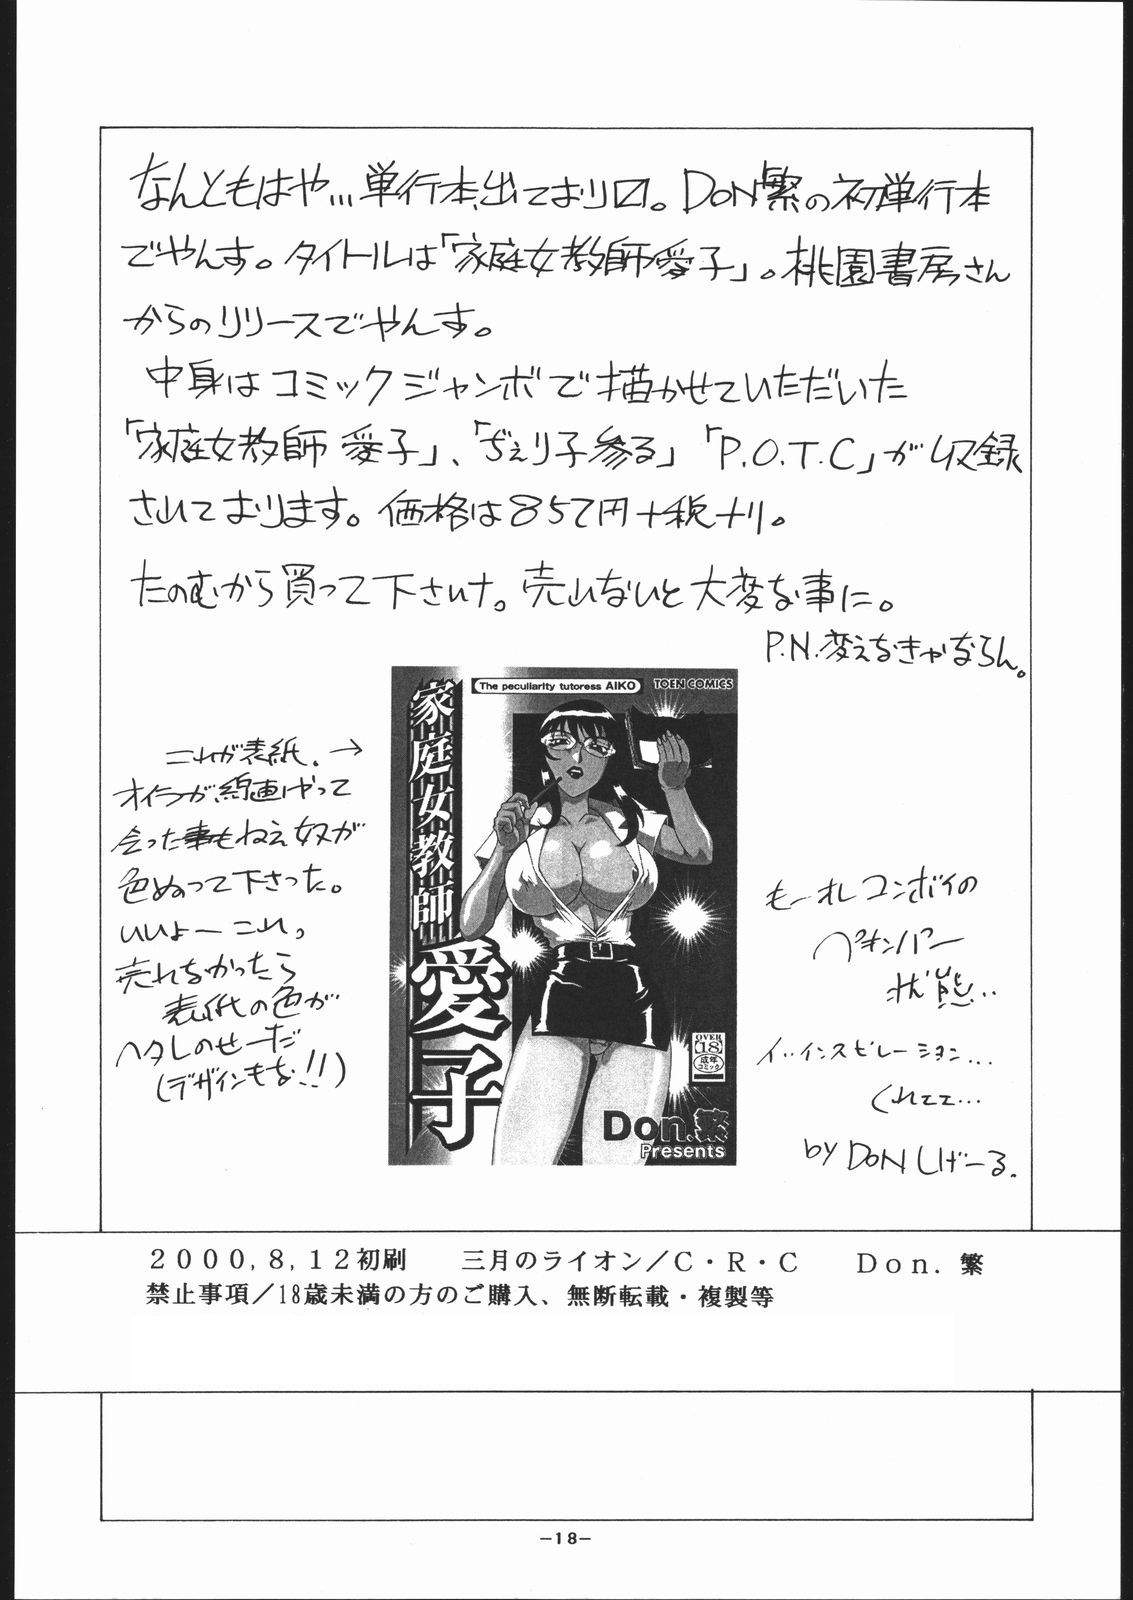 なんともはや…単行本、出ており〼。DON繁の初単行本
でやんす。タイトルは「家庭女教師愛子」。桃園書房さん
からのリリースでやんす。
中身はコミックジャンボで描かせていただいた
「家庭女教師 愛子」、「ぢぇり子参る」「P.O.T.C」が収録
されております。価格は857円+税ナリ。
たのむから買って下さいナ。売れないと大変な事に。
P.N.変えなきゃならん。
これが表紙。→
オイラが線画はやって
会った事もねえ奴が
色ぬって下さった。
いいよーこれ、
売れなかったら
表紙の色が
ヘタレのせーだ
(デザインもな!!)
The peculiarity tutoress AIKO
TOEN COMICS
家庭女教師
愛子
OVER
18
成年
コミック
Don.繁
Presents
もーオレコンボイの
ペオンパー
状態…
イ、インスピレーション…
くれてて…
by DON しげーる.
2000,8,12初刷 三月のライオン/C・R・C Don.繁
禁止事項/18歳未満の方のご購入、無断転載・複製等
-18-